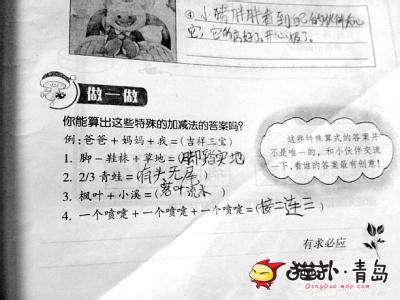 ④小猪胖胖看到自己的伙伴关心
它,它的病好了,开心极了。
做一做
你能算出这些特殊的加减法的答案吗?
例:爸爸+妈妈+我=(吉祥三宝)
1. 脚-鞋袜+草地=(脚踏实地
2. 2/3 青蛙=(有头无尾)
3. 枫叶+小溪=(落叶流水)
4. 一个喷嚏+一个喷嚏+一个喷嚏=(接二连三)
这些特殊算式的答案并
不是唯一的。和小伙伴交流
一下,看谁的答案最有创意!
有求必应
猫扑·青岛
QingDao.mop.com